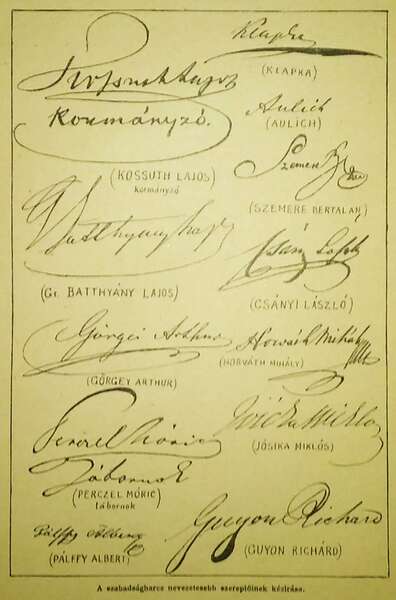 Kossuth Lajos
Kormányzó.
(KOSSUTH LAJOS)
kormányzó
Batthyány Lajos
(Gr. BATTHYÁNY LAJOS)
Görgei Arthur
(GÖRGEY ARTHUR)
Perczel Móric
Tábornok
(PERCZEL MÓRIC)
tábornok
Pálffy Albert
(PÁLFFY ALBERT)
Klapka
(KLAPKA)
Aulich
(AULICH)
Szemere
(SZEMERE BERTALAN)
Csány László
(CSÁNYI LÁSZLÓ)
Horváth Mihály
(HORVÁTH MIHÁLY)
Jósika Miklós
(JÓSIKA MIKLÓS)
Guyon Richard
(GUYON RICHÁRD)
A szabadságharcz nevezetesebb szereplőinek kézirása.